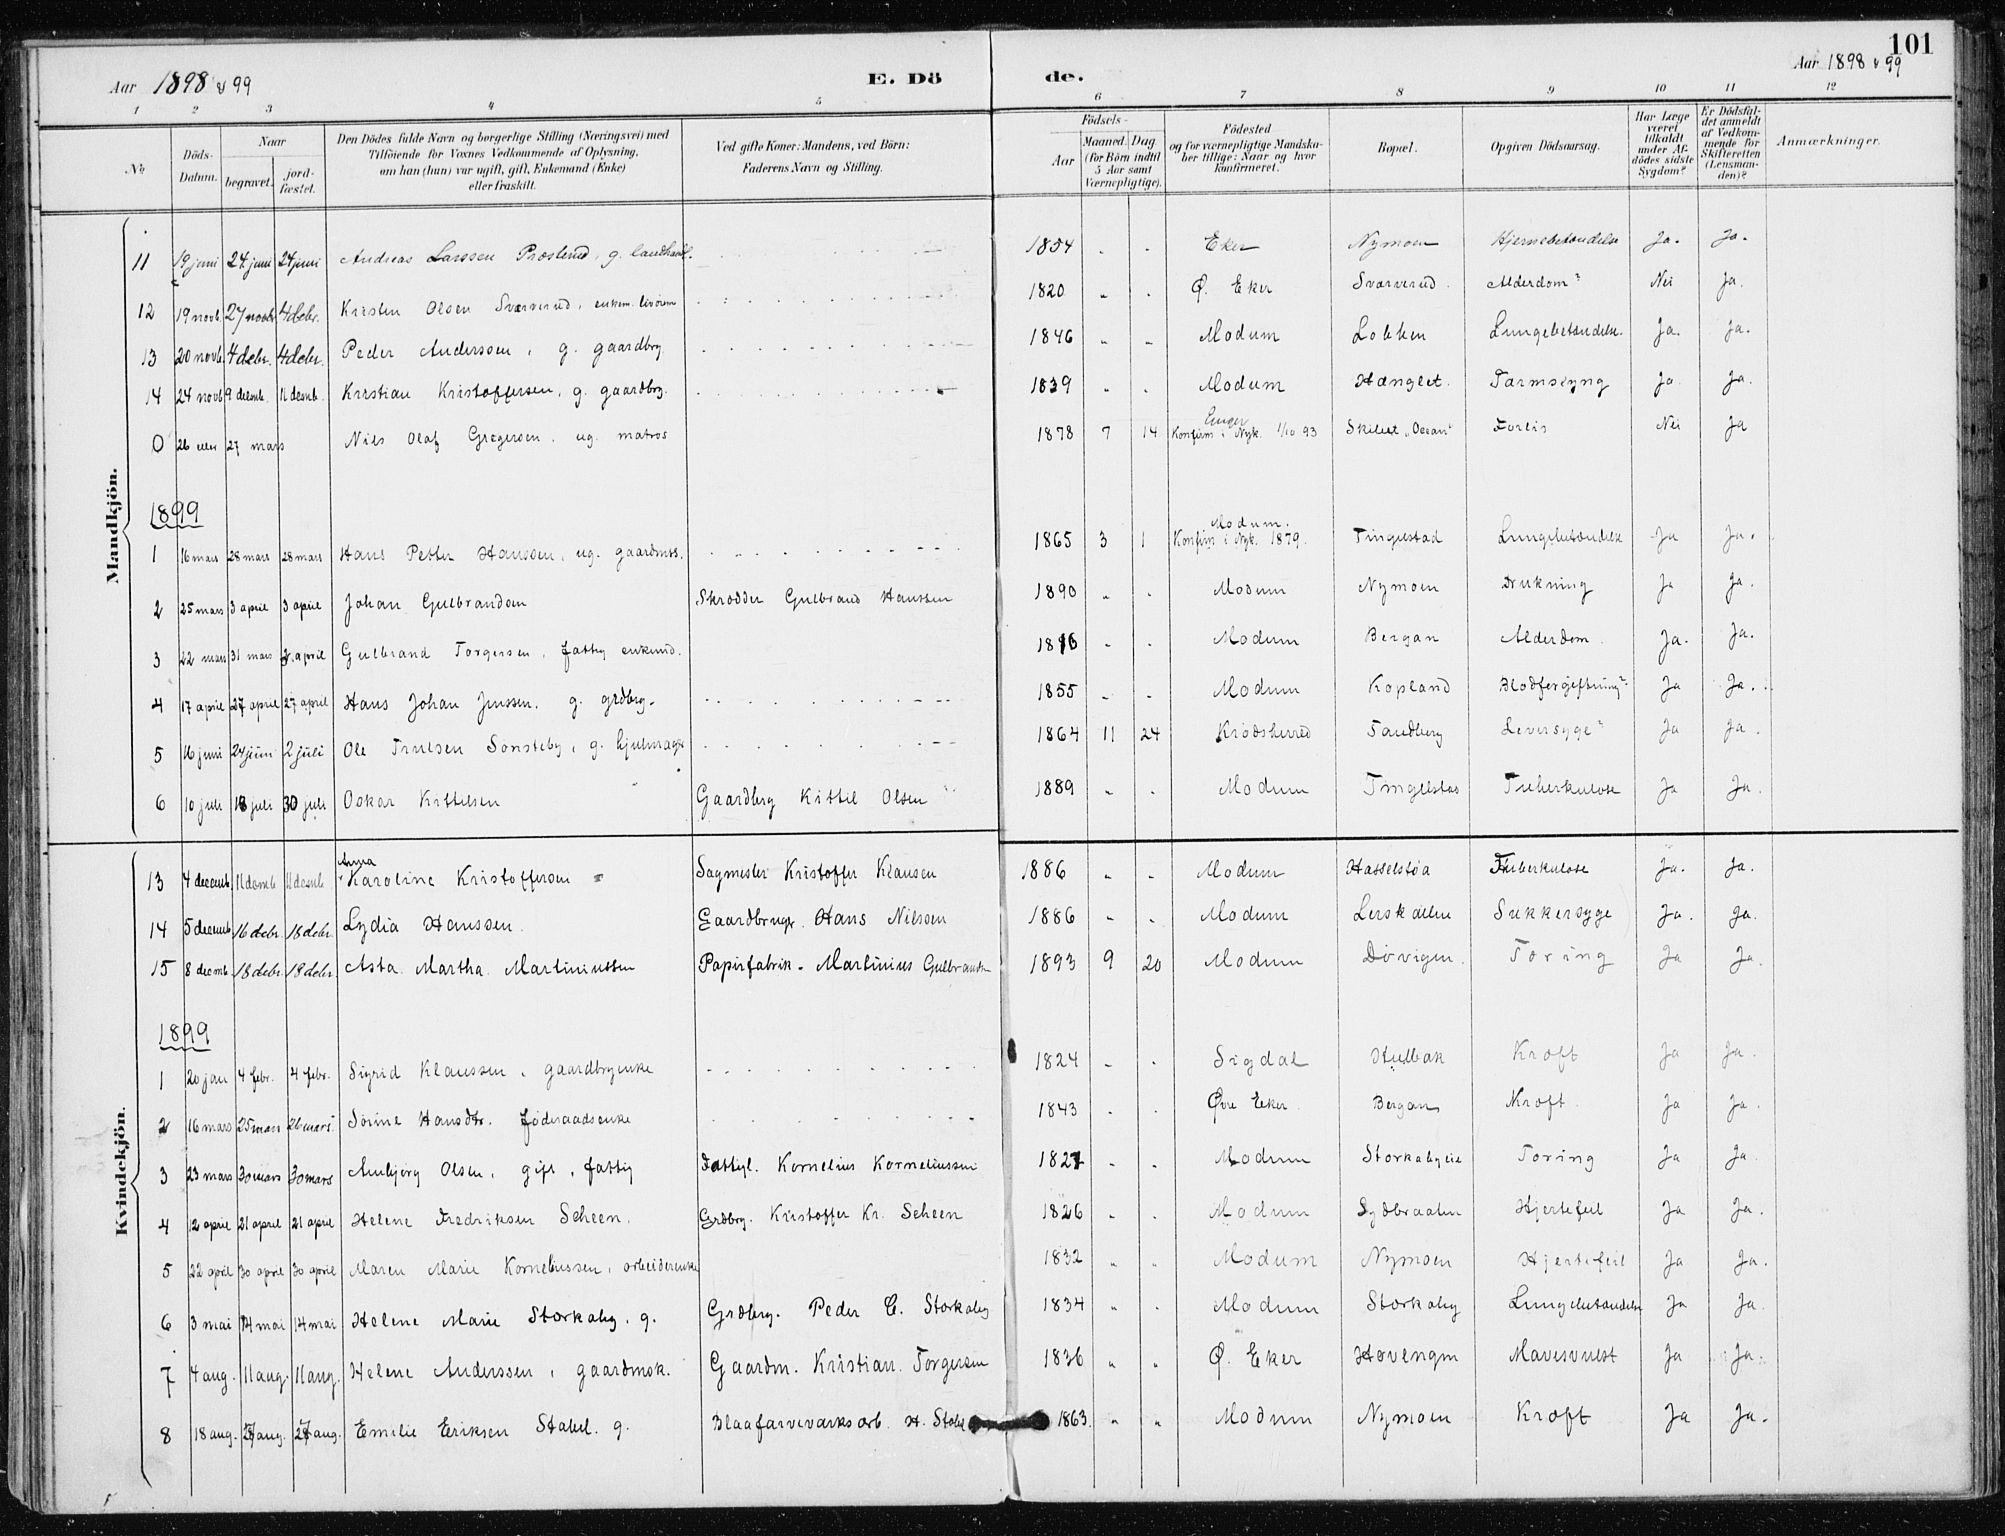 101
Aar 1898 & 99 E. Dö de. Aar 1898 & 99
1 2 3 4 5 6 7 8 9 10 11 12
No. Döds-Datum. Naar begravet. jord-fæstet. Den Dödes fulde Navn og borgerlige Stilling (Næringsvei) med Tilföiende for Voxnes Vedkommende af Oplysning, om han (hun) var ugift, gift, Enkemand (Enke) eller fraskilt. Ved gifte Koner: Mandens, ved Börn: Faderens Navn og Stilling. Födsels- Aar Maaned. Dag (for Börn indtil 5 Aar samt Værnepligtige). Födested og for værnepligtige Mandskaber tillige: Naar og hvor konfirmeret. Bopæl. Opgiven Dödsaarsag. Har Læge været tilkaldt under Afdödes sidste Sygdom? Er Dödsfaldet anmeldt af Vedkommende for Skifteretten (Lensmanden)? Anmærkninger.
Mandkjön.
11 19 juni 24 juni 24 juni Andreas Larssen Præsterud, g. landhandl. 1854 Eker Nymoen Hjernebetændelse Ja. Ja.
12 19 novb. 27 novbr. 4 debr. Kristen Olsen Sværverud, enkem. livøren 1820 Ø. Eker Sværverud. Alderdom? Nei Ja.
13 20 novb. 4 debr. 4 debr. Peder Anderssen, g. gaardbrg. 1846 Modum Løkken Lungebetændelse. Ja. Ja.
14 24 novb 9 decmb. 11 decmb. Kristian Kristoffersen, g. gaardbrg. 1839 Modum Hænglet. Tarmslyng Ja. Ja.
0 26 eller 27 mars Nils Olaf Gregersen, ug. matros 1878 7 14 Enger Konfirm i Nyk. 1/10 93 Skibet "Ocean" Forlis Nei Ja
1899
1 16 mars 28 mars 28 mars Hans Petter Hanssen, ug. gaardmds. 1865 3 1 Modum. Konfirm i Nyk. 1879. Tingelstad Lungebetændelse Ja Ja.
2 25 mars 3 april 3 april Johan Gulbrandsen Skrædder Gulbrand Hanssen 1890 Modum Nymoen Drukning Ja Ja.
3 22 mars 31 mars 2. april Gulbrand Torgersen, fattig enkemd. 1810 Modum Bergan Alderdom. Ja. Ja.
4 17 april 27 april 27 april Hans Johan Jenssen. g. grdbrg. 1855 Modum Kopland Blodforgiftning? Ja Ja.
5 16 juni 24 juni 2 juli Ole Trulsen Sønsteby, g. hjulmager 1864 11 24 Krødsherred Tandberg Leversyge? Ja Ja.
6 10 juli 18 juli 30 juli Oskar Kittelsen Gaardbrg Kittil Olsen 1889 Modum Tingelstad Tuberkulose Ja Ja.
Kvindekjön.
13 4 decemb. 11 decmb. 11 decmb. Anna Karoline Kristoffersen Sagmester Kristoffer Klausen 1886 Modum Hasselstøa Tuberkulose Ja. Ja.
14 5 decemb. 16 debr. 18 debr. Lydia Hanssen. Gaardbrugr. Hans Nilsen 1886 Modum Lerskallen Sukkersyge Ja. Ja.
15 8 decmb. 18 debr. 18 debr. Asta Martha Martiniussen Papirfabrik. Martinius Gulbrandsn 1893 9 20 Modum Døvigen. Tæring Ja Ja.
1899
1 20 jan 4 febr. 4 febr. Sigrid Klaussen, gaardbrgenke 1824 Sigdal Hulbak Kræft Ja Ja.
2 16 mars 25 mars 26 mars. Sørine Hansdtr. føderaadsenke 1843 Øvre Eker. Bergan Kræft. Ja Ja.
3 23 mars 30 mars 30 mars Anbjørg Olsen, gift, fattig Fattigl. Kornelius Korneliussen 1827 Modum Storkabyeie Tæring Ja Ja.
4 12 april 21 april 21 april Helene Fredriksen Scheen. Grdbrg. Kristoffer Kr. Scheen 1826 Modum Sydbraaten Hjertefeil Ja Ja.
5 22 april 30 april 30 april Maren Marie Korneliussen, arbeiderenke 1832 Modum Nymoen Hjertefeil Ja Ja.
6 3 mai 14 mai 14 mai Helene Marie Storkaby. g. Grdbrg. Peder E. Storkaby 1834 Modum Storkaby Lungebetændelse Ja Ja.
7 4 aug. 11 aug. 11 aug. Helene Anderssen, gaardmsk. Gaardm. Kristian Torgersen 1836 Ø. Eker Hovengm Mavesvulst Ja Ja.
8 18 aug. 27 aug. 27 aug. Emilie Eriksen Stabel. g. Blaafarveværksarb. H. Stabel 1863. Modum Nymoen Kræft Ja Ja.